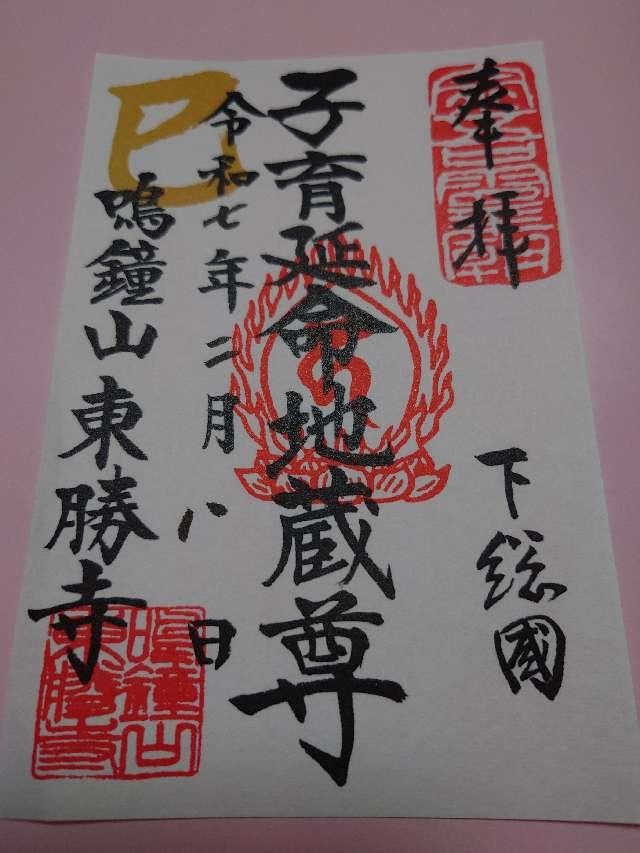 奉拝
下総國
子育延命地蔵尊
令和七年二月八日
巳
鳴鐘山東勝寺
鳴鐘山
東勝寺